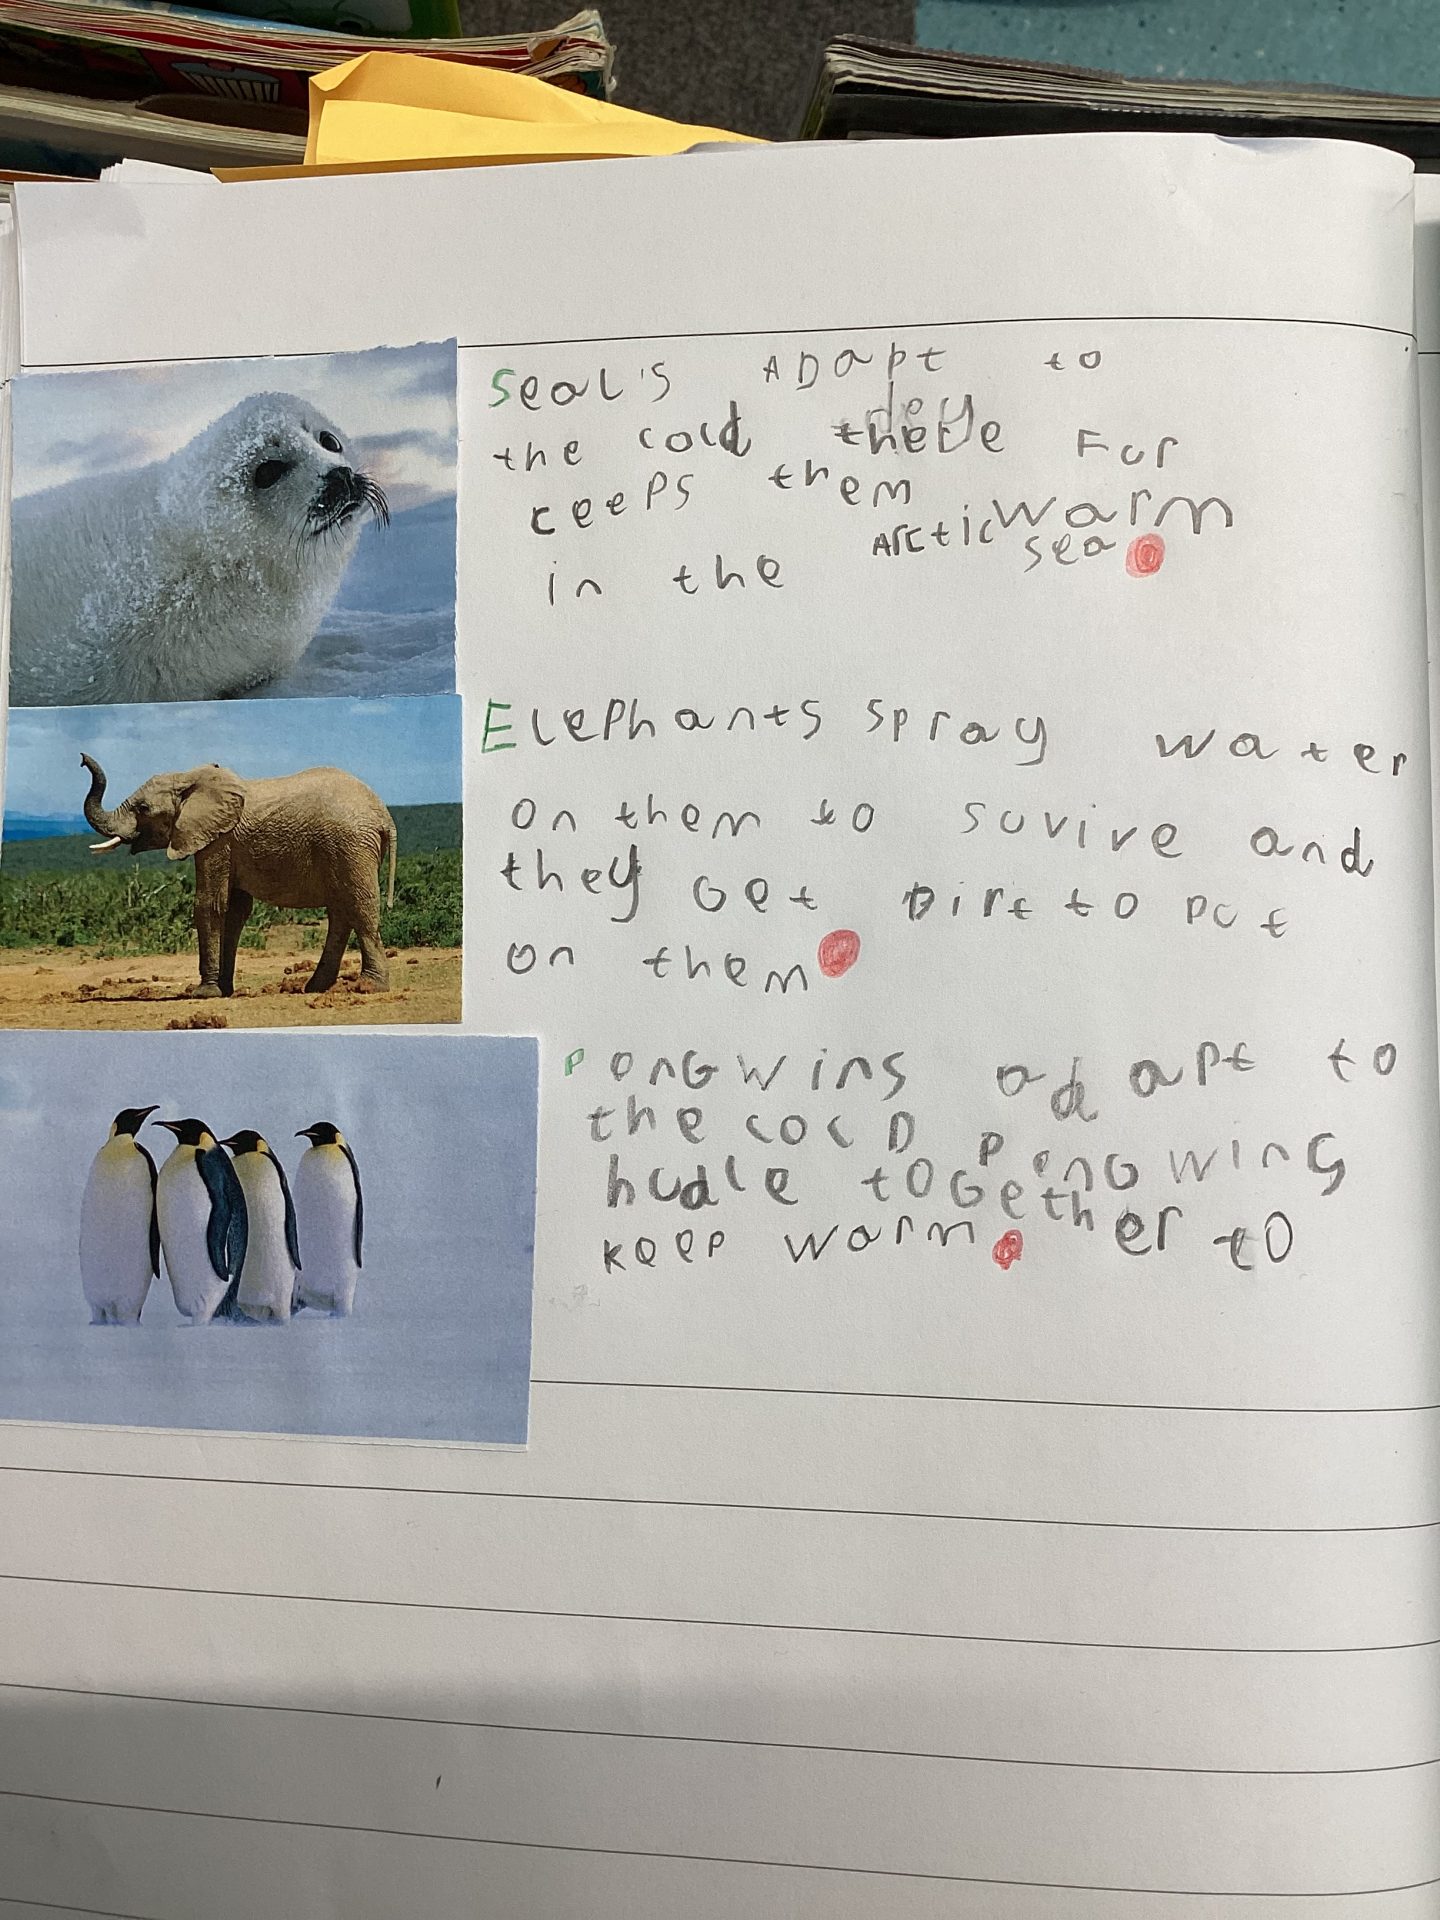 Seal's ADapt to
the cold there Fur
ceeps them warm
in the Arctic sea.
Elephants spray water
on them to survire and
they Get Dirt to put
on them.
PenGwins adapt to
the colD penGwins
hudle toGether to
keep warm.